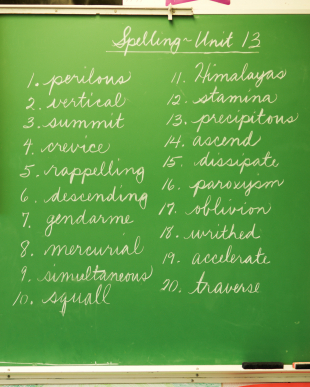 Spelling~Unit 13
1. perilous
2. vertical
3. summit
4. crevice
5. rappelling
6. descending
7. gendarme
8. mercurial
9. simultaneous
10. squall
11. Himalayas
12. stamina
13. precipitous
14. ascend
15. dissipate
16. paroxysm
17. oblivion
18. writhed
19. accelerate
20. traverse